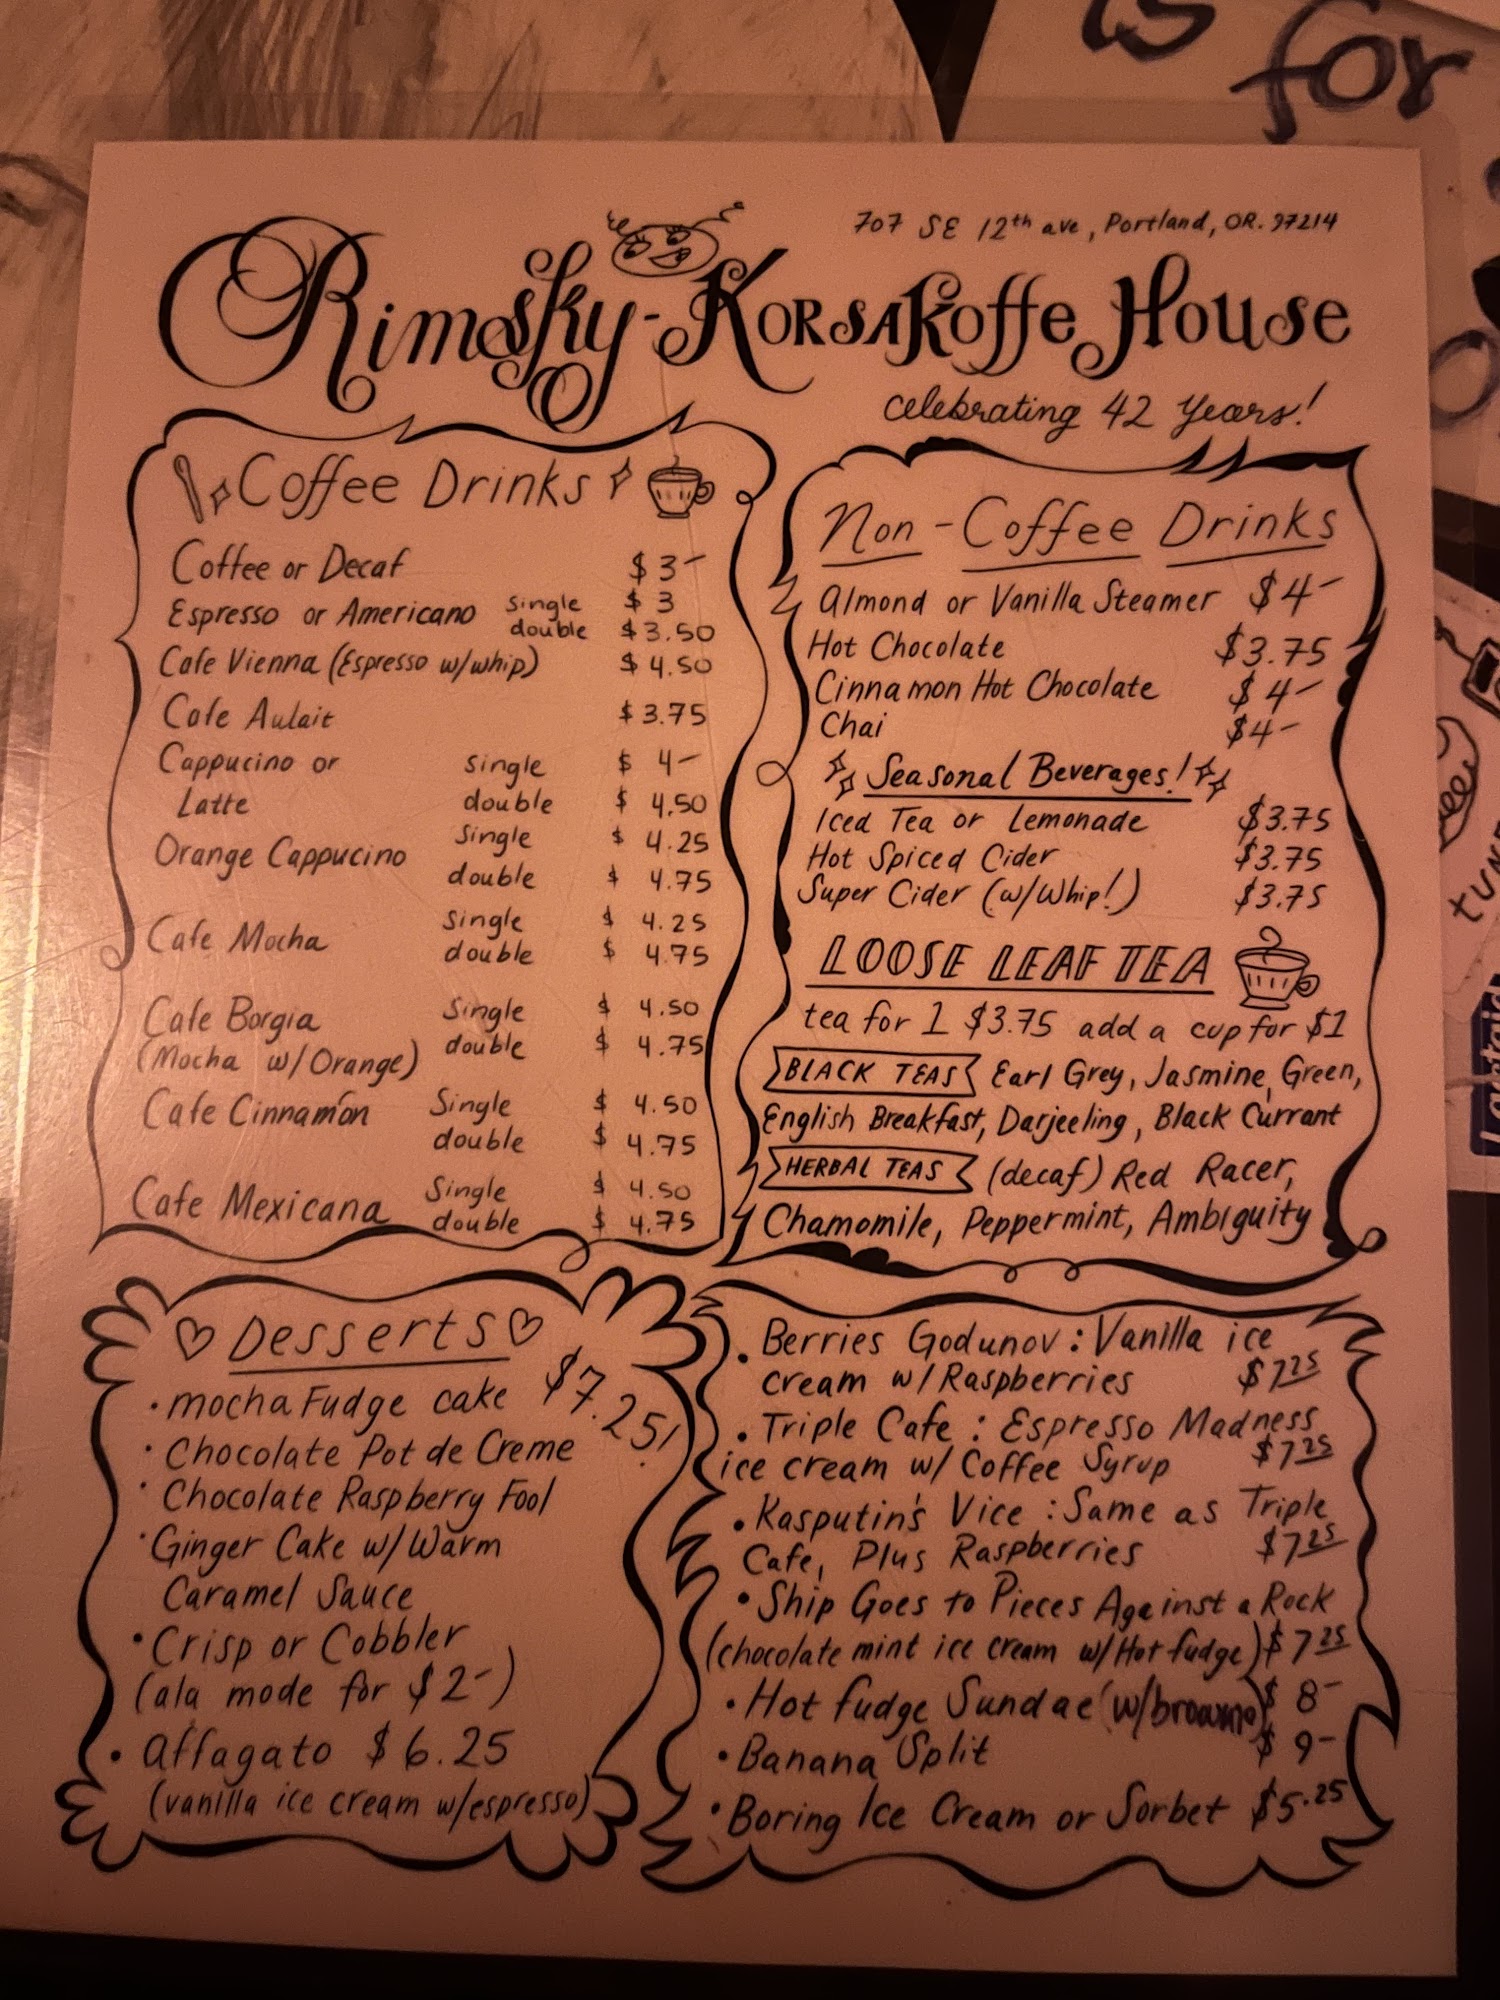 is for
707 SE 12th ave, Portland, OR. 97214
Rimsky-Korsakoffe House
celebrating 42 years!
Coffee Drinks
Coffee or Decaf $3-
Espresso or Americano single $3
double $3.50
Cafe Vienna (Espresso w/whip) $4.50
Cafe Aulait $3.75
Cappucino or single $4-
Latte double $4.50
Orange Cappucino single $4.25
double $4.75
Cafe Mocha single $4.25
double $4.75
Cafe Borgia Single $4.50
(Mocha w/Orange) double $4.75
Cafe Cinnamon Single $4.50
double $4.75
Cafe Mexicana Single $4.50
double $4.75
Non-Coffee Drinks
Almond or Vanilla Steamer $4-
Hot Chocolate $3.75
Cinnamon Hot Chocolate $4-
Chai $4-
Seasonal Beverages!
Iced Tea or Lemonade $3.75
Hot Spiced Cider $3.75
Super Cider (w/Whip!) $3.75
LOOSE LEAF TEA
tea for 1 $3.75 add a cup for $1
BLACK TEAS Earl Grey, Jasmine, Green,
English Breakfast, Darjeeling, Black Currant
HERBAL TEAS (decaf) Red Racer,
Chamomile, Peppermint, Ambiguity
Desserts
• mocha Fudge cake $7.25!
• Chocolate Pot de Creme
• Chocolate Raspberry Fool
• Ginger Cake w/Warm
Caramel Sauce
• Crisp or Cobbler
(ala mode for $2-)
• Affagato $6.25
(vanilla ice cream w/espresso)
• Berries Godunov: Vanilla ice
cream w/Raspberries $7.25
• Triple Cafe: Espresso Madness
ice cream w/ Coffee Syrup $7.25
• Kasputin's Vice: Same as Triple
Cafe, Plus Raspberries $7.25
• Ship Goes to Pieces Against a Rock
(chocolate mint ice cream w/Hot fudge) $7.25
• Hot fudge Sundae $8-
• Banana Split $9-
• Boring Ice Cream or Sorbet $5.25